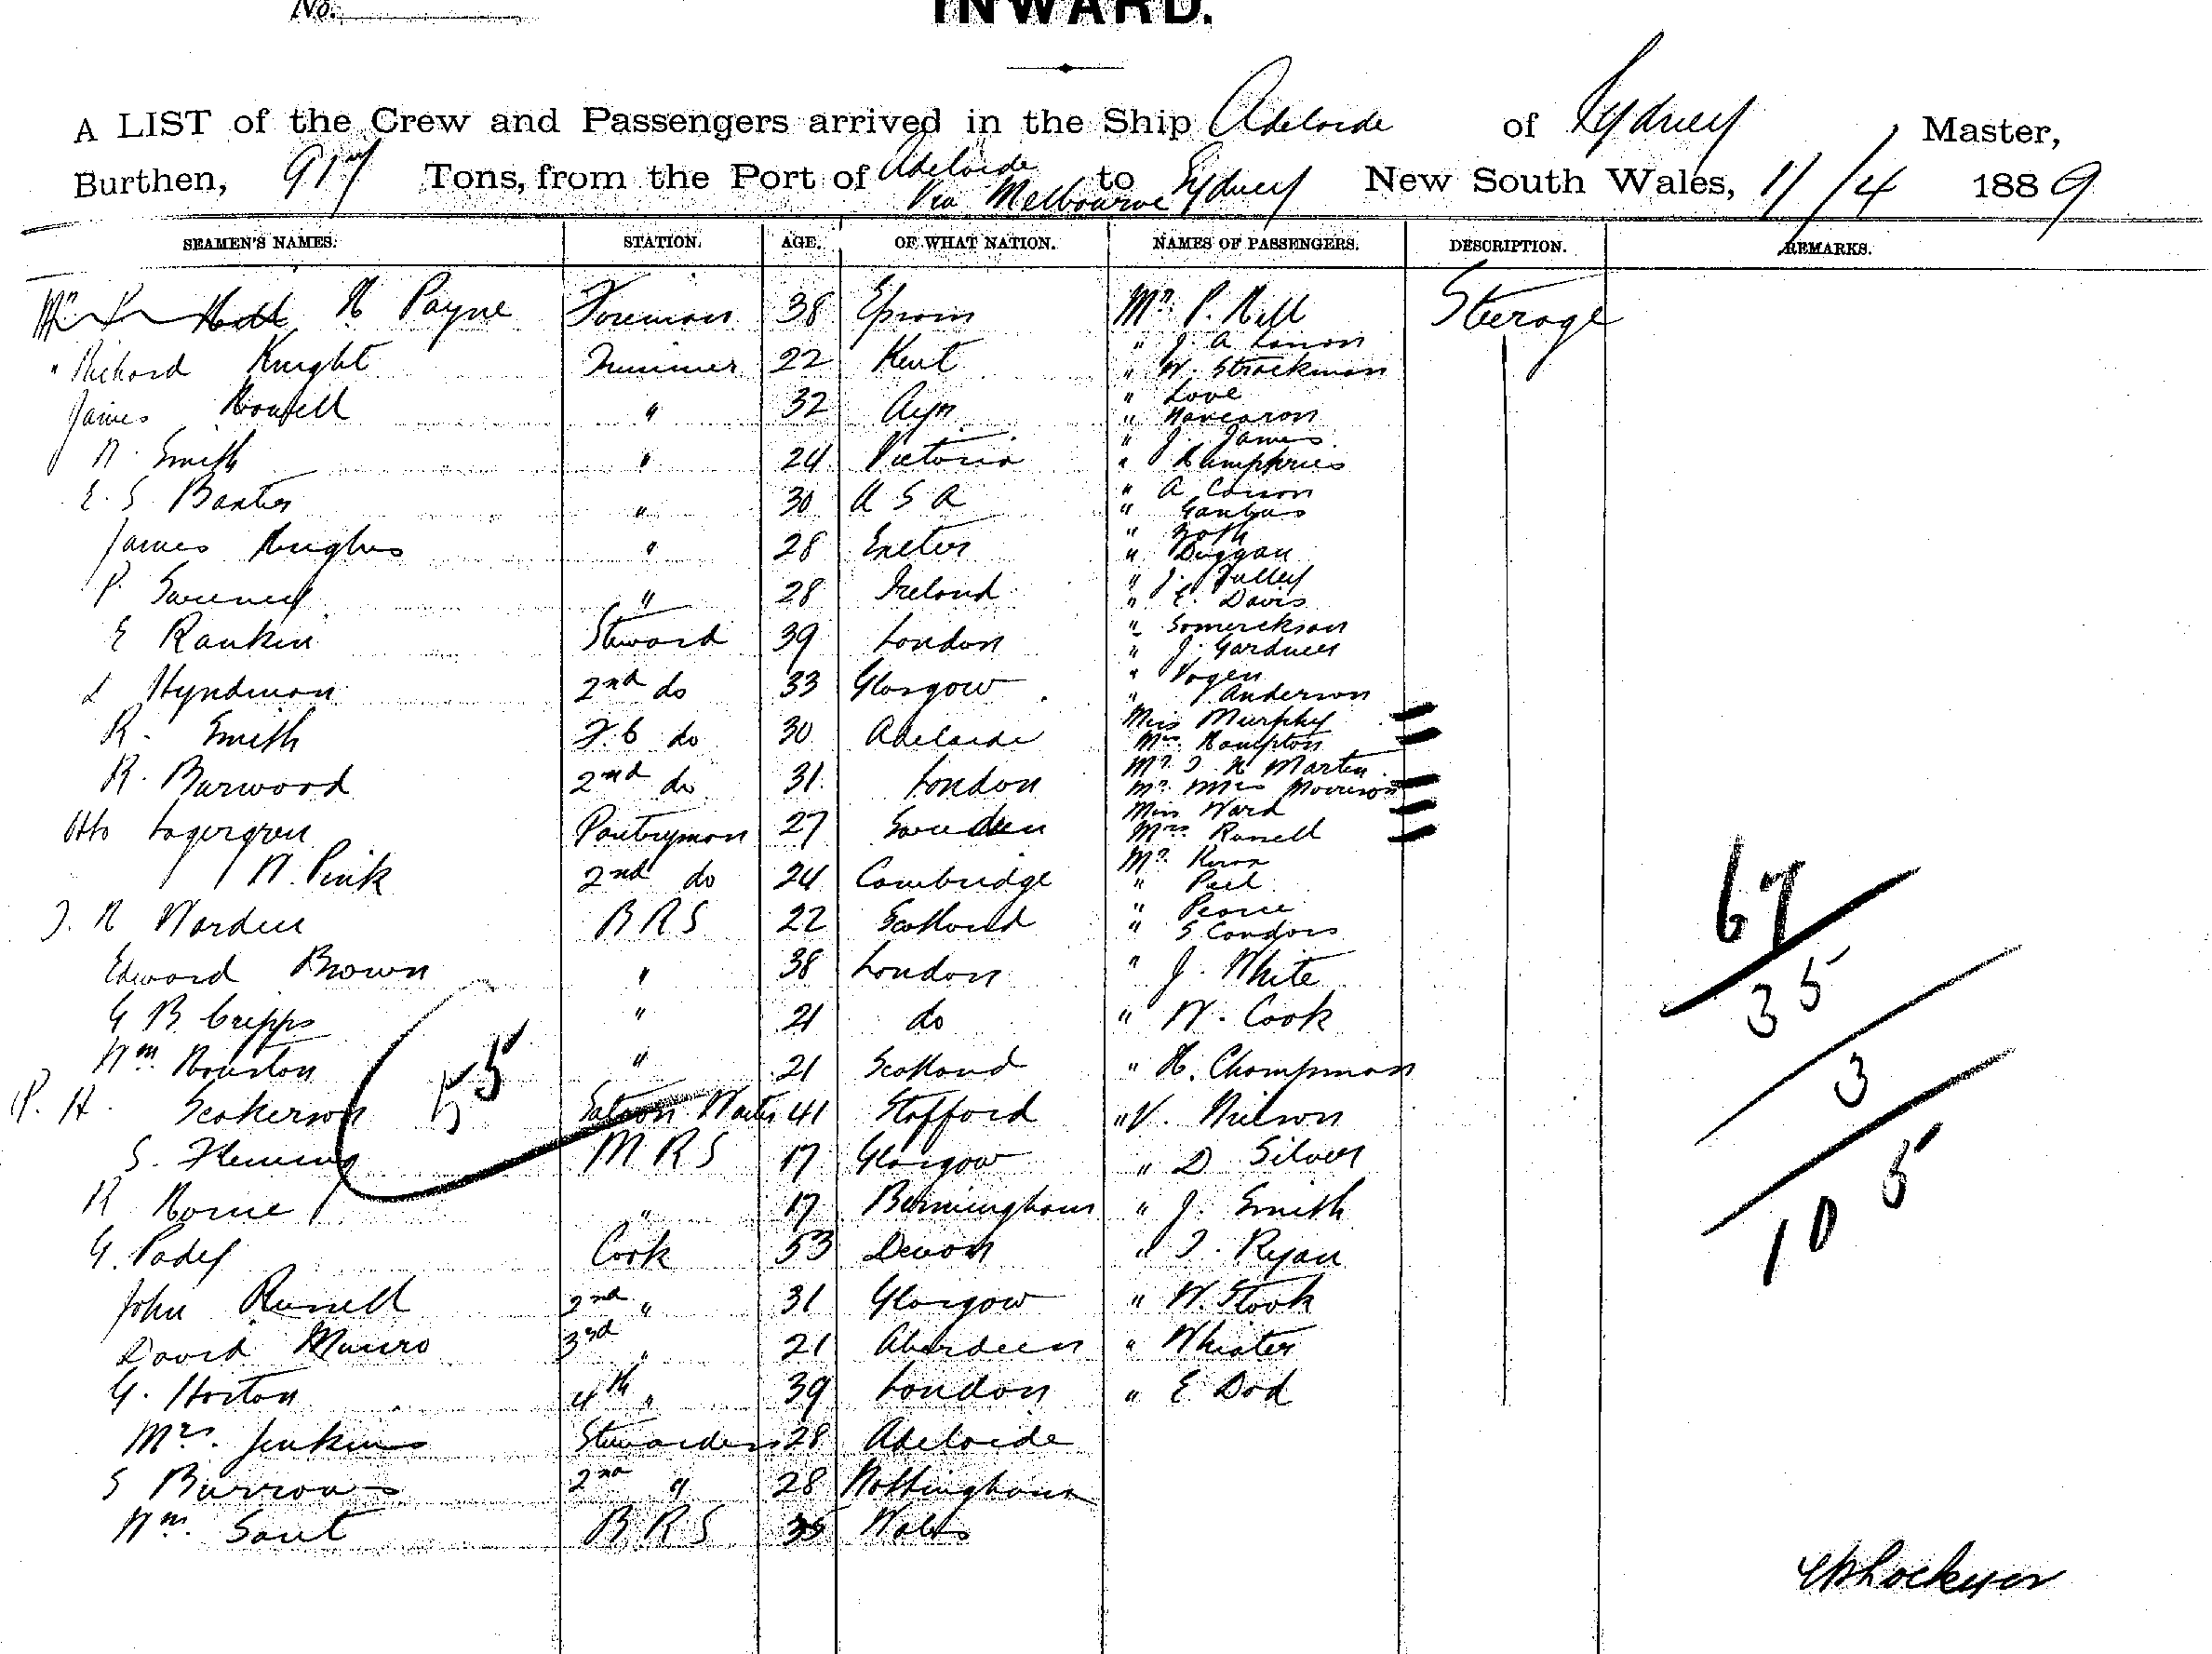 No.
INWARD.
A LIST of the Crew and Passengers arrived in the Ship Adelaide of Sydney Master,
Burthen, 917 Tons, from the Port of Adelaide Via Melbourne to Sydney New South Wales, 11/4 1889
SEAMEN'S NAMES. STATION. AGE. OF WHAT NATION. NAMES OF PASSENGERS. DESCRIPTION. REMARKS.
H Payne Foreman 38 Epsom Mr. P. Hill Steerage
" J. A
" Richard Knight Trimmer 22 Kent " W. Strackman
" Love
James Howell " 32 Ayr "
" J. James
N. Smith " 24 Victoria " Humphries
E. S. Baxter " 30 U S A " A
"
" Zoth
James Hughes " 28 Exeter " Duggan
" J. Tulley
P. Sweeney " 28 Ireland " E. Davis
"
E Rankin Steward 39 London " J. Gardner
" Vogen
L Hyndman 2nd do 33 Glasgow " Anderson
Miss Murphy
R. Smith F. C do 30 Adelaide Mrs. Hampton
Mr. J. H Martin
R. Burwood 2nd do 31 London Mr. Mrs Morrison
Miss Ward
Otto Lagergren Pantryman 27 Sweden Mrs. Russell
Mr.
W. Pink 2nd do 24 Cambridge " Peel
" Pearce
J. H Warden B R S 22 Scotland " S. Condors
Edward Brown " 38 London " J. White
G B Cripps " 21 do " W. Cook
Wm Houston " 21 Scotland " H. Chapman
P. H. Seakerson Saloon Waiter 41 Stafford " V. Neilson
S. Fleming M R S 17 Glasgow " D Silver
H Horne " 17 Birmingham " J. Smith
G. Padey Cook 53 Devon " J. Ryan
John Russell 2nd " 31 Glasgow " W. Stook
David Munro 3rd " 21 Aberdeen " Whister
G. Horton 4th " 39 London " E Dod
Mrs. Jenkins Stewardess 28 Adelaide
S Burrows 2nd " 28 Nottingham
Wm. Sout B R S 35 Wales
55
67
35
3
105
Lockyer